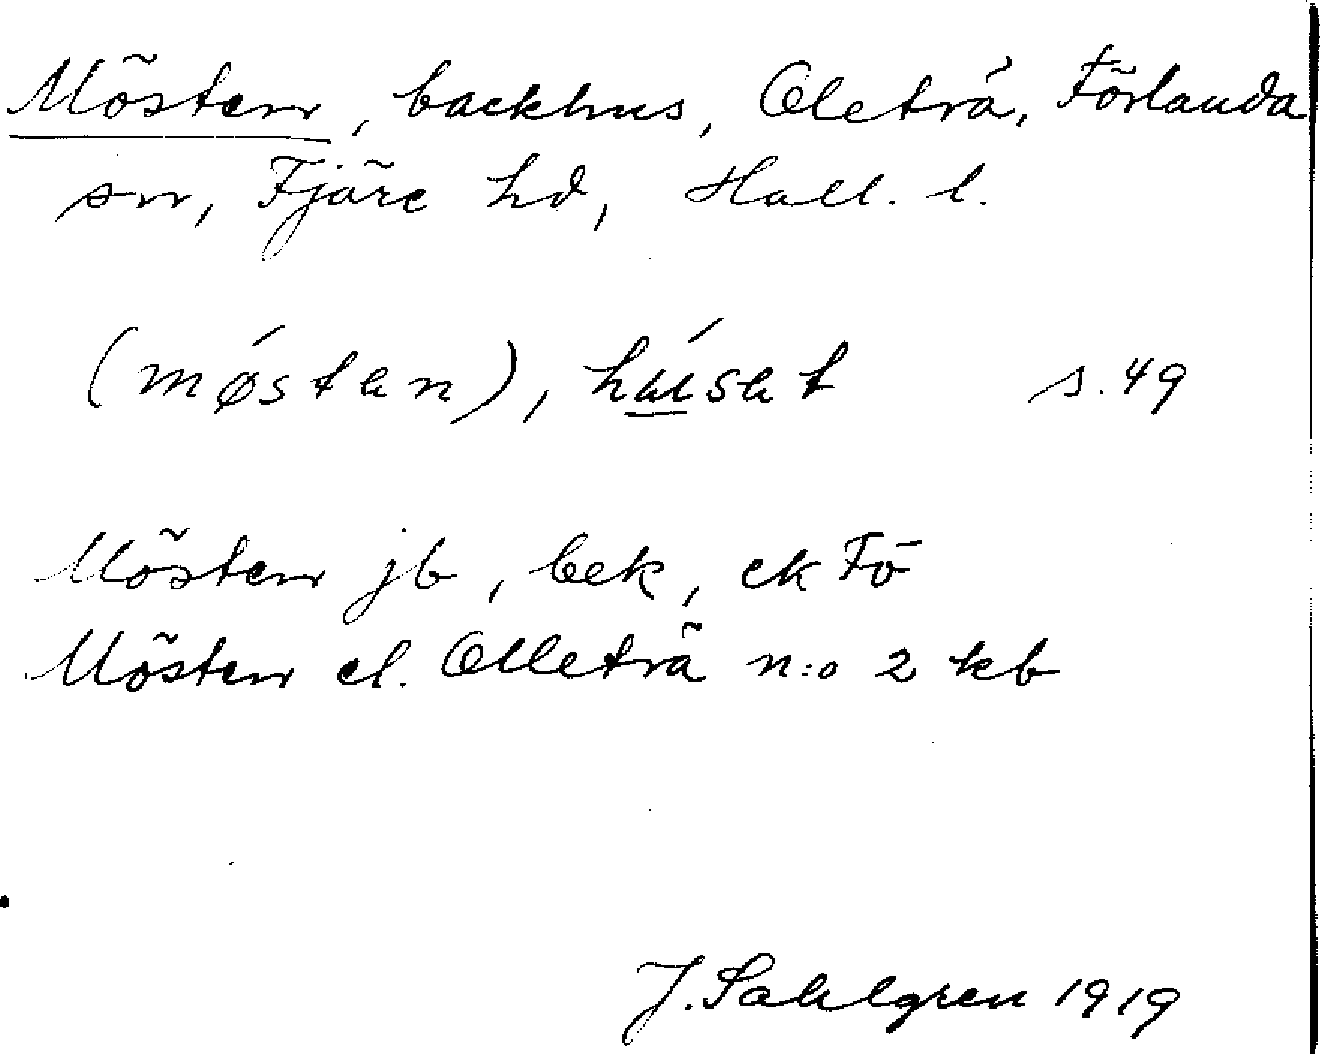 Mösten, backhus, Oleträ, Förlanda
sn, Fjäre hd, Hall. l.
(mǿstan), húsat s. 49
Mösten jb, bek, ek Fö
Mösten el. Olleträ n:o 2 kb
J. Sahlgren 1919